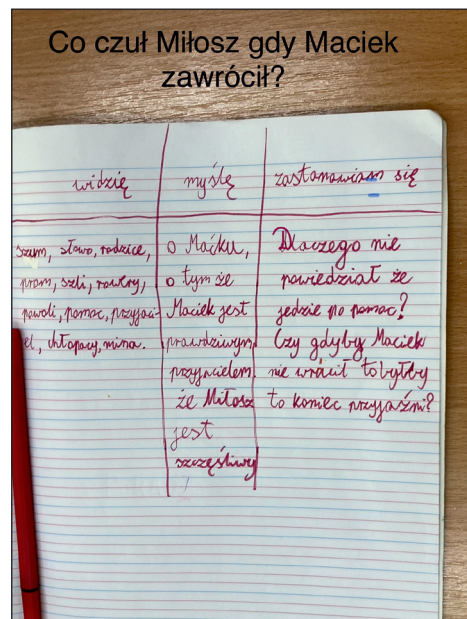 Co czuł Miłosz gdy Maciek
zawrócił?
widzię
szum, słowo, rodzice,
szli, rowery,
powoli, pomoc, przyjaci-
el, chłopacy, mina.
myślę
o Maćku,
o tym że
Maciek jest
prawdziwym
przyjacielem
że Miłosz
jest
szczęśliwy
zastanawiam się
Dlaczego nie
powiedział że
jedzie po pomoc?
Czy gdyby Maciek
nie wrócił tobyłby
to koniec przyjaźni?